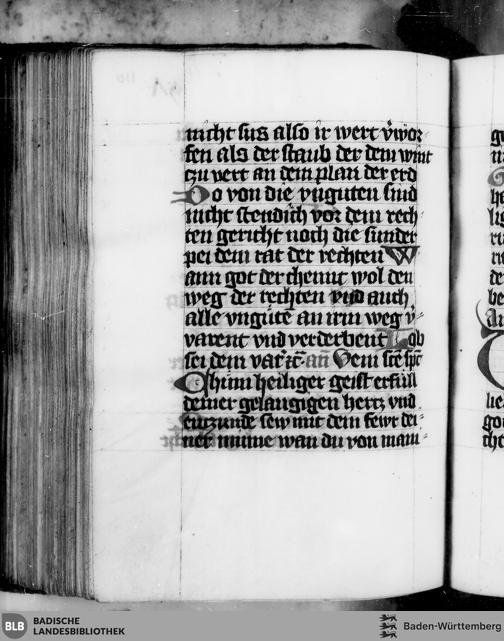 nicht sus also ir wert v̾wor
fen als der staub der dem wint
czu vert an dem plan der erd
Do von die vnguten sind
nicht stendich vor dem rech
ten gericht noch die sunder
pei dem rat der rechten W
ann got der chennt wol den
weg der rechten vnd auch
alle vngute an irm weg v̾
varent vnd verderbent Lob
sei dem vat̾ ꝛc̃ añ Veni sc̃e sp̃c
Chum heiliger geist erfull
deiner gelaugigen hercz vnd
enczunde sew mit dem fewr dei
ner minne wan du von mani
BLB BADISCHE
LANDESBIBLIOTHEK
Baden-Württemberg